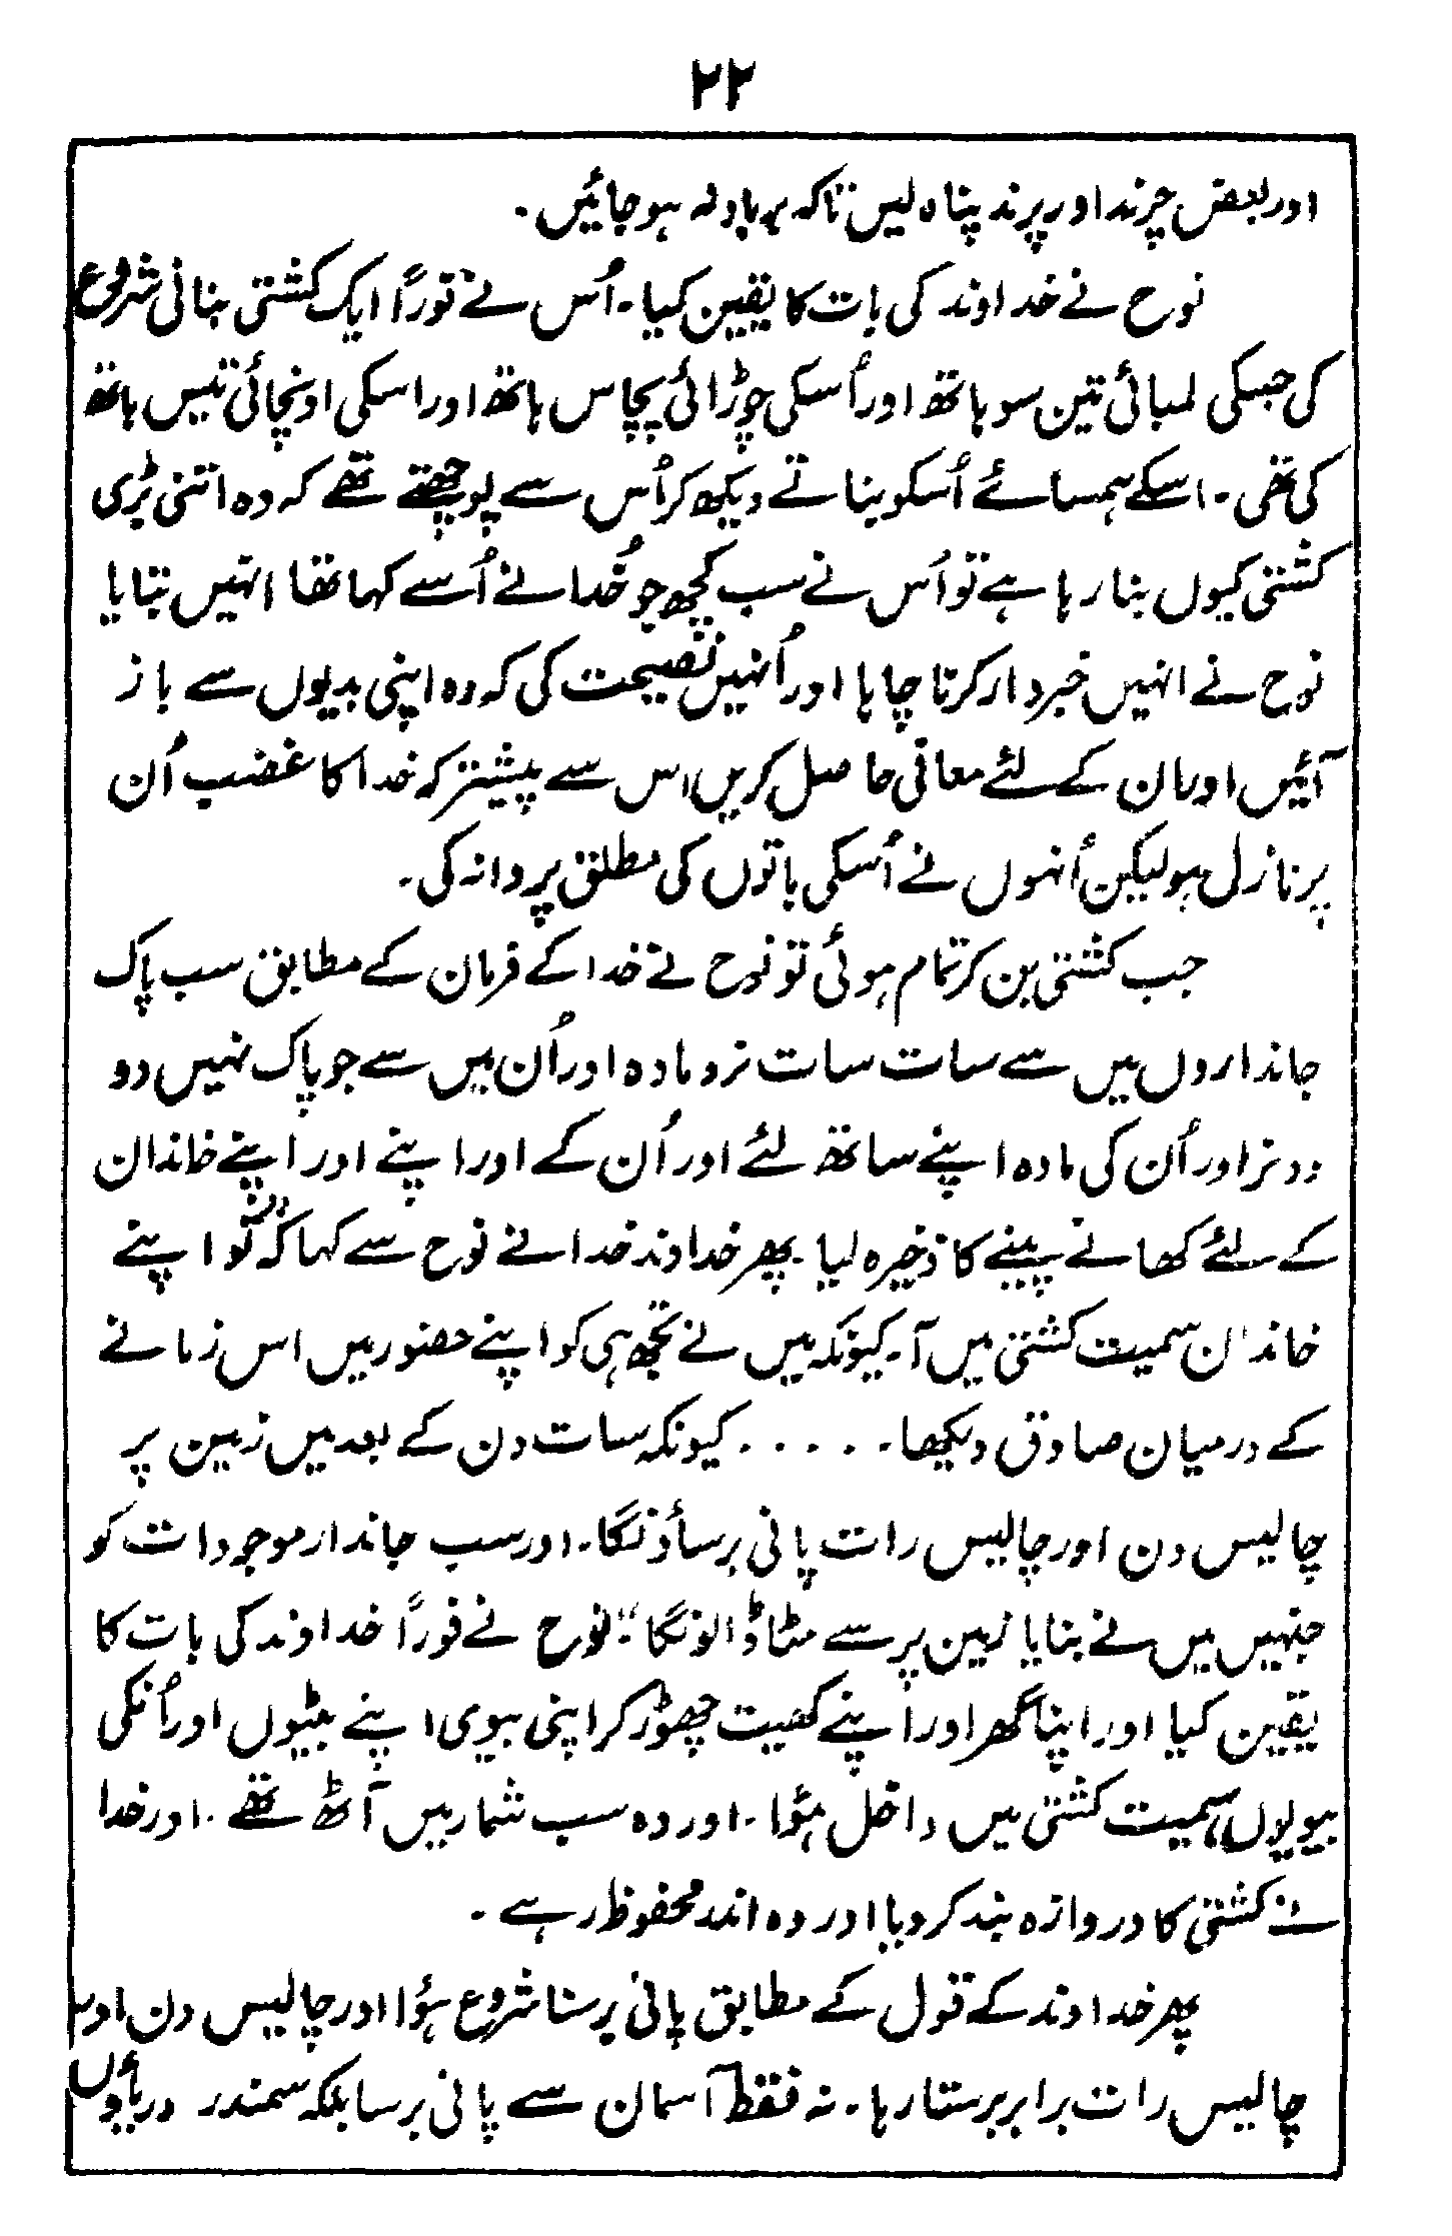 ۲۲
اور بعض چرند اور پرند پناہ لیں تاکہ برباد نہ ہو جائیں۔
نوح نے خداوند کی بات کا یقین کیا۔ اُس نے فوراً ایک کشتی بنانی شروع
کی جسکی لمبائی تین سو ہاتھ اور اُسکی چوڑائی پچاس ہاتھ اور اسکی اونچائی تیس ہاتھ
کی تھی۔ اسکے ہمسائے اُسکو بناتے دیکھ کر اُس سے پوچھتے تھے کہ وہ اتنی بڑی
کشتی کیوں بنا رہا ہے تو اُس نے سب کچھ جو خُدا نے اُسے کہا تھا انہیں بتایا
نوح نے انہیں خبردار کرنا چاہا اور اُنہیں نصیحت کی کہ وہ اپنی بدیوں سے باز
آئیں اور ان کے لئے معافی حاصل کریں اس سے پیشتر کہ خدا کا غضب اُن
پر نازل ہو لیکن اُنہوں نے اُسکی باتوں کی مطلق پروا نہ کی۔
جب کشتی بن کر تمام ہوئی تو نوح نے خدا کے فرمان کے مطابق سب پاک
جانداروں میں سے سات سات نر و مادہ اور اُن میں سے جو پاک نہیں دو
دو نر اور اُن کی مادہ اپنے ساتھ لئے اور اُن کے اور اپنے اور اپنے خاندان
کے لئے کھانے پینے کا ذخیرہ لیا۔ پھر خداوند خدا نے نوح سے کہا کہ "تُو اپنے
خاندان سمیت کشتی میں آ۔ کیونکہ میں نے تجھ ہی کو اپنے حضور میں اس زمانے
کے درمیان صادق دیکھا۔ . . . . . کیونکہ سات دن کے بعد میں زمین پر
چالیس دن اور چالیس رات پانی برساؤنگا۔ اور سب جاندار موجودات کو
جنہیں میں نے بنایا زمین پر سے مٹا ڈالونگا"۔ نوح نے فوراً خداوند کی بات کا
یقین کیا اور اپنا گھر اور اپنے کھیت چھوڑ کر اپنی بیوی اپنے بیٹوں اور اُنکی
بیویوں سمیت کشتی میں داخل ہؤا۔ اور وہ سب شمار میں آٹھ تھے۔ اور خدا
نے کشتی کا دروازہ بند کر دیا اور وہ اندر محفوظ رہے۔
پھر خداوند کے قول کے مطابق پانی برسنا شروع ہؤا اور چالیس دن اور
چالیس رات برابر برستا رہا۔ نہ فقط آسمان سے پانی برسا بلکہ سمندر دریاؤں